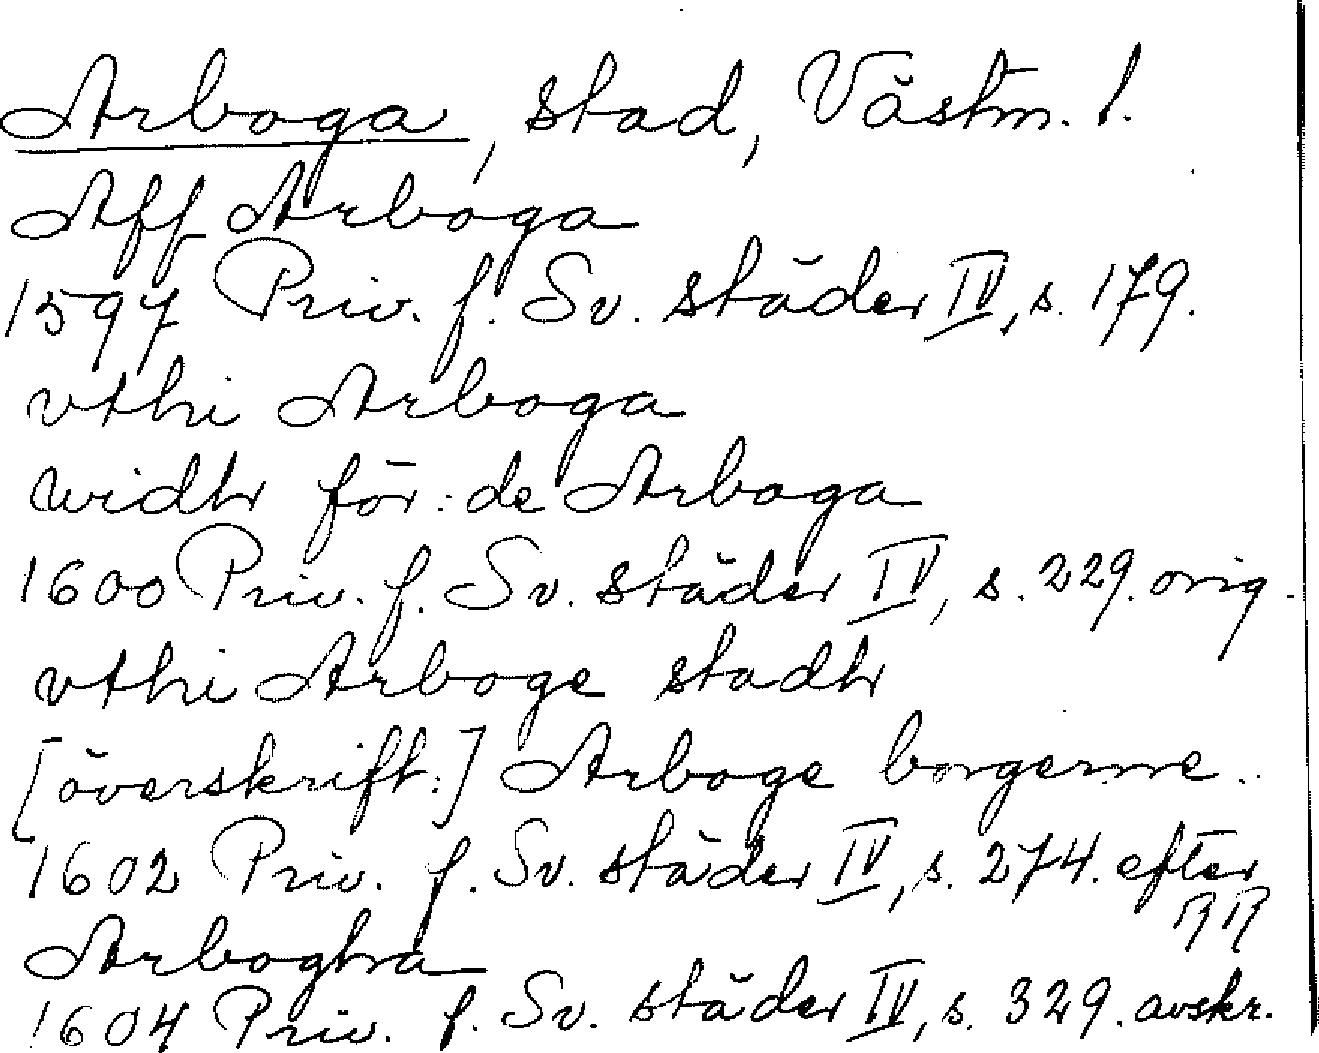 Arboga, stad, Västm. l.
Aff Arboga
1597 Priv. f. Sv. städer IV, s. 179.
vthi Arboga
widh för: de Arboga
1600 Priv. f. Sv. städer IV, s. 229. orig.
vthi Arboge stadh
[överskrift:] Arboge borgerne..
1602 Priv. f. Sv. städer IV, s. 274. efter
RR
Arbogha
1604 Priv. f. Sv. städer IV, s. 329. avskr.